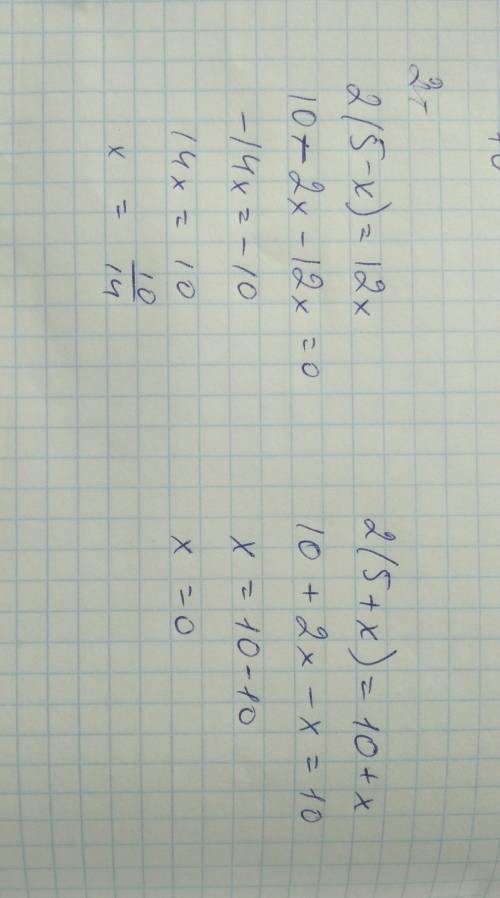 2(5-x)=12x
10-2x-12x=0
-14x=-10
14x=10
x = 10/14
2(5+x)=10+x
10+2x-x=10
x=10-10
x=0